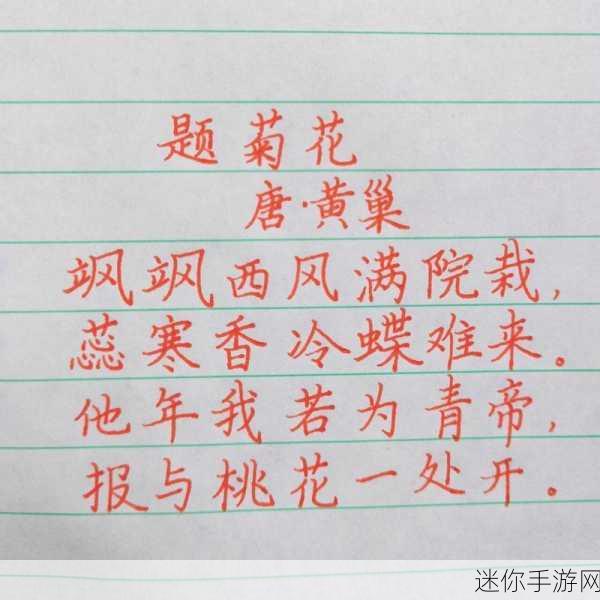 题菊花
唐·黄巢
飒飒西风满院栽,
蕊寒香冷蝶难来。
他年我若为青帝,
报与桃花一处开。
迷你手游网